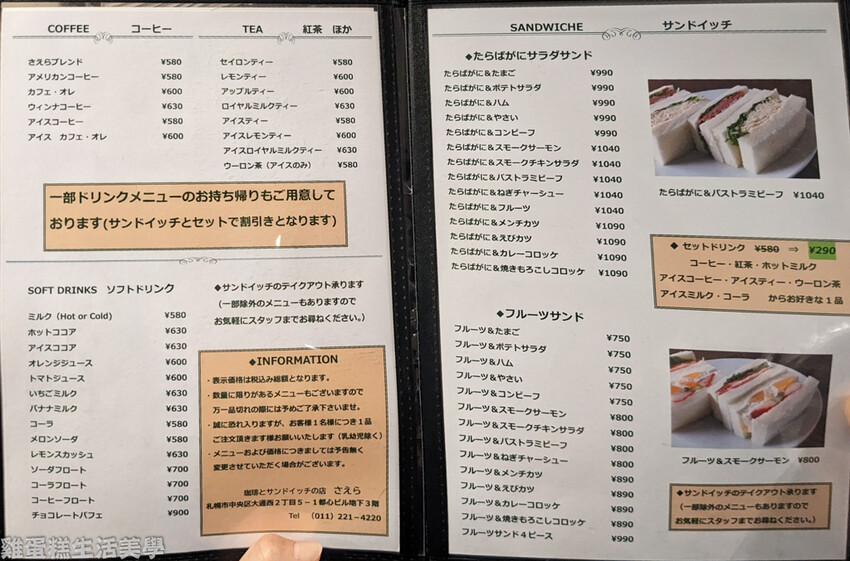 COFFEE コーヒー
さえらブレンド ¥580
アメリカンコーヒー ¥580
カフェ・オレ ¥600
ウィンナコーヒー ¥630
アイスコーヒー ¥580
アイス カフェ・オレ ¥600
TEA 紅茶 ほか
セイロンティー ¥580
レモンティー ¥600
アップルティー ¥600
ロイヤルミルクティー ¥630
アイスティー ¥580
アイスレモンティー ¥600
アイスロイヤルミルクティー ¥630
ウーロン茶（アイスのみ） ¥580
一部ドリンクメニューのお持ち帰りもご用意して
おります(サンドイッチとセットで割引きとなります)
SOFT DRINKS ソフトドリンク
ミルク（Hot or Cold） ¥580
ホットココア ¥630
アイスココア ¥630
オレンジジュース ¥600
トマトジュース ¥600
いちごミルク ¥630
バナナミルク ¥630
コーラ ¥580
メロンソーダ ¥580
レモンスカッシュ ¥630
ソーダフロート ¥700
コーラフロート ¥700
コーヒーフロート ¥700
チョコレートパフェ ¥900
◆サンドイッチのテイクアウト承ります
（一部除外のメニューもありますので
お気軽にスタッフまでお尋ねください。）
◆INFORMATION
・表示価格は税込み総額となります。
・数量に限りがあるメニューもございますので
万一品切れの際には予めご了承下さいませ。
・誠に恐れ入りますが、お客様１名様につき１品
ご注文頂きます様お願いいたします（乳幼児除く）
・メニューおよび価格につきましては予告無く
変更させていただく場合がございます。
珈琲とサンドイッチの店 さえら
札幌市中央区大通西２丁目５－１都心ビル地下３階
Tel （011）221－4220
SANDWICHE サンドイッチ
◆たらばがにサラダサンド
たらばがに＆たまご ¥990
たらばがに＆ポテトサラダ ¥990
たらばがに＆ハム ¥990
たらばがに＆やさい ¥990
たらばがに＆コンビーフ ¥990
たらばがに＆スモークサーモン ¥1040
たらばがに＆スモークチキンサラダ ¥1040
たらばがに＆パストラミビーフ ¥1040
たらばがに＆ねぎチャーシュー ¥1040
たらばがに＆フルーツ ¥1040
たらばがに＆メンチカツ ¥1090
たらばがに＆えびカツ ¥1090
たらばがに＆カレーコロッケ ¥1090
たらばがに＆焼きもろこしコロッケ ¥1090
◆フルーツサンド
フルーツ＆たまご ¥750
フルーツ＆ポテトサラダ ¥750
フルーツ＆ハム ¥750
フルーツ＆やさい ¥750
フルーツ＆コンビーフ ¥750
フルーツ＆スモークサーモン ¥800
フルーツ＆スモークチキンサラダ ¥800
フルーツ＆パストラミビーフ ¥800
フルーツ＆ねぎチャーシュー ¥800
フルーツ＆メンチカツ ¥890
フルーツ＆えびカツ ¥890
フルーツ＆カレーコロッケ ¥890
フルーツ＆焼きもろこしコロッケ ¥890
フルーツサンド４ピース ¥990
たらばがに＆パストラミビーフ ¥1040
◆ セットドリンク ¥580 ⇒ ¥290
コーヒー・紅茶・ホットミルク
アイスコーヒー・アイスティー・ウーロン茶
アイスミルク・コーラ からお好きな１品
フルーツ＆スモークサーモン ¥800
◆サンドイッチのテイクアウト承ります
（一部除外のメニューもありますので
お気軽にスタッフまでお尋ねください。）
雞蛋糕生活美學